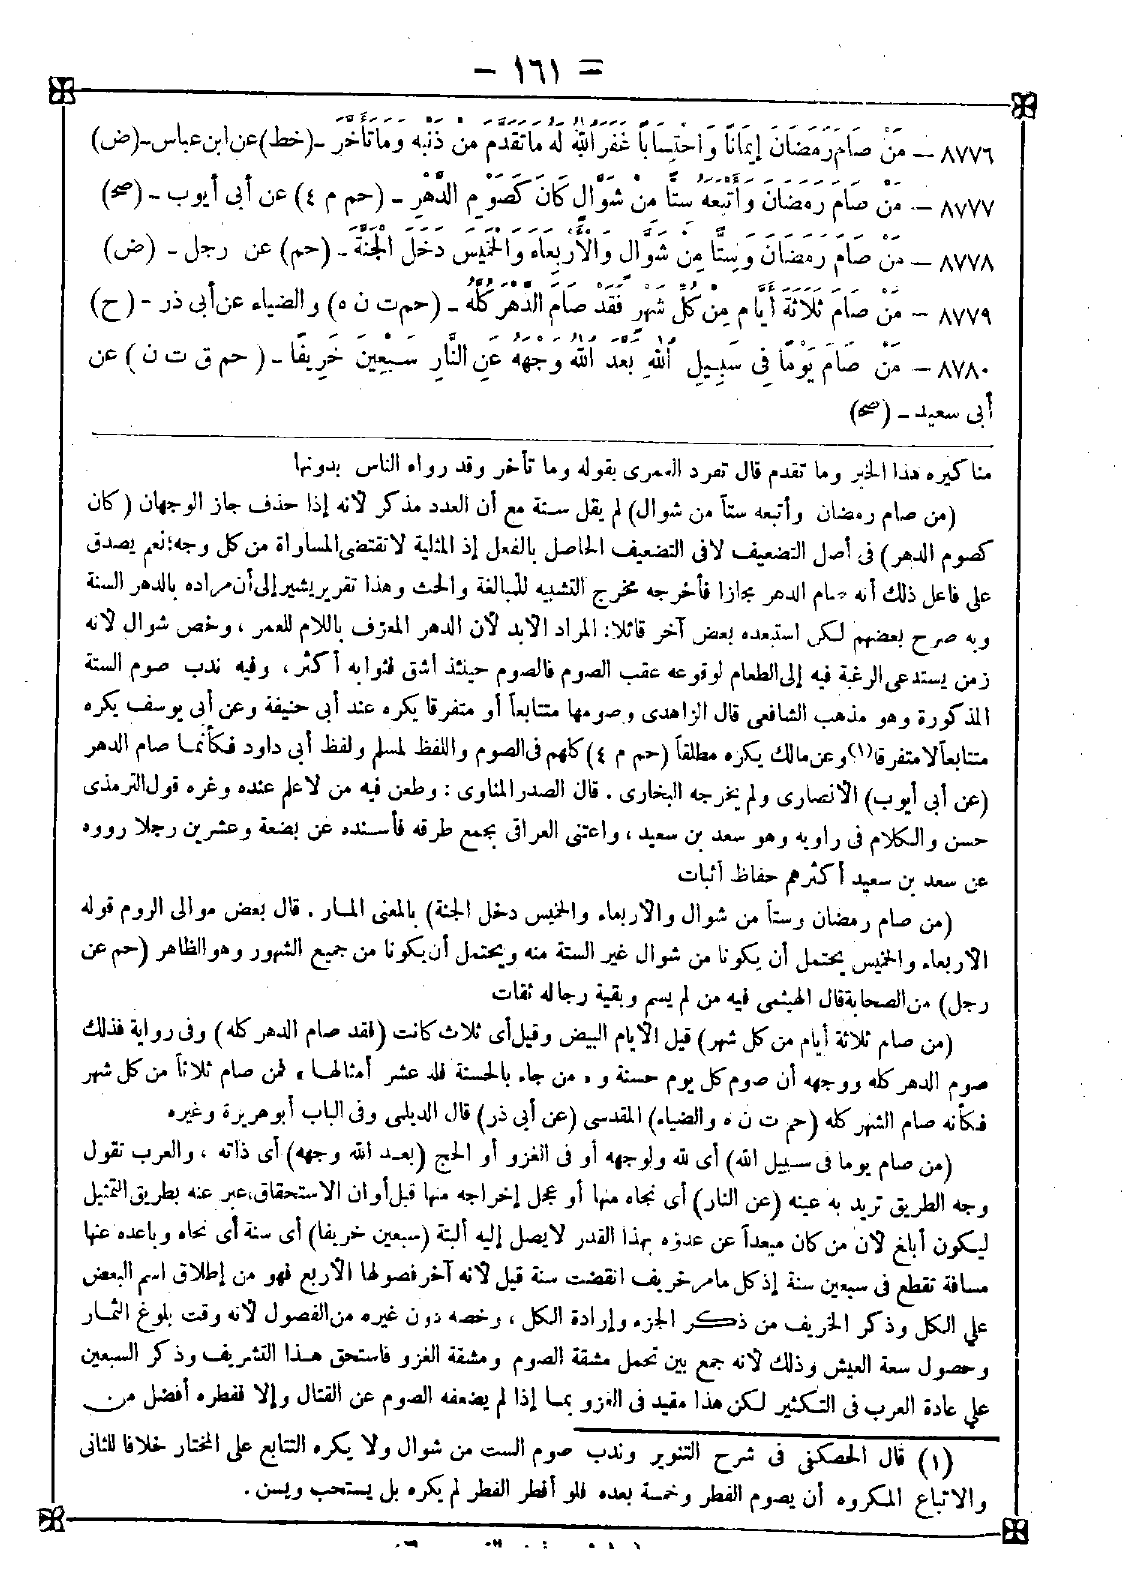 = ١٦١ -
٨٧٧٦ - مَنْ صَامَ رَمَضَانَ إِيمَانًا وَاحْتِسَابًا غَفَرَ اللهُ لَهُ مَا تَقَدَّمَ مِنْ ذَنْبِهِ وَمَا تَأَخَّرَ - (خط) عن ابن عباس - (ض)
٨٧٧٧ - مَنْ صَامَ رَمَضَانَ وَأَتْبَعَهُ سِتًّا مِنْ شَوَّالٍ كَانَ كَصَوْمِ الدَّهْرِ - (حم م ٤) عن أبى أيوب - (صح)
٨٧٧٨ - مَنْ صَامَ رَمَضَانَ وَسِتًّا مِنْ شَوَّالٍ وَالْأَرْبِعَاءَ وَالْخَمِيسَ دَخَلَ الْجَنَّةَ - (حم) عن رجل - (ض)
٨٧٧٩ - مَنْ صَامَ ثَلَاثَةَ أَيَّامٍ مِنْ كُلِّ شَهْرٍ فَقَدْ صَامَ الدَّهْرَ كُلَّهُ - (حم ت ن ه) والضياء عن أبى ذر - (ح)
٨٧٨٠ - مَنْ صَامَ يَوْمًا فِى سَبِيلِ اللهِ بَعَّدَ اللهُ وَجْهَهُ عَنِ النَّارِ سَبْعِينَ خَرِيفًا - (حم ق ت ن) عن
أبى سعيد - (صح)
مناكيره هذا الخبر وما تقدم قال تفرد العمرى بقوله وما تأخر وقد رواه الناس بدونها
(من صام رمضان وأتبعه ستاً من شوال) لم يقل ستة مع أن العدد مذكر لأنه إذا حذف جاز الوجهان (كان
كصوم الدهر) فى أصل التضعيف لا فى التضعيف الحاصل بالفعل إذ المثلية لا تقتضى المساواة من كل وجه؛ نعم يصدق
على فاعل ذلك أنه صام الدهر مجازا فأخرجه مخرج التشبيه للمبالغة والحث وهذا تقرير يشير إلى أن مراده بالدهر السنة
وبه صرح بعضهم لكن استبعده بعض آخر قائلا: المراد الأبد لأن الدهر المعرّف باللام للعمر، وخص شوال لأنه
زمن يستدعى الرغبة فيه إلى الطعام لوقوعه عقب الصوم فالصوم حينئذ أشق فثوابه أكثر، وفيه ندب صوم الستة
المذكورة وهو مذهب الشافعى قال الزاهدى وصومها متتابعاً أو متفرقا يكره عند أبى حنيفة وعن أبى يوسف يكره
متتابعاً لا متفرقا(١) وعن مالك يكره مطلقاً (حم م ٤) كلهم فى الصوم واللفظ لمسلم ولفظ أبى داود فكأنما صام الدهر
(عن أبى أيوب) الأنصارى ولم يخرجه البخارى . قال الصدر المناوى : وطعن فيه من لا علم عنده وغره قول الترمذى
حسن والكلام فى راويه وهو سعد بن سعيد ، واعتنى العراقى بجمع طرقه فأسنده عن بضعة وعشرين رجلا رووه
عن سعد بن سعيد أكثرهم حفاظ أثبات
(من صام رمضان وستاً من شوال والأربعاء والخميس دخل الجنة) بالمعنى المار . قال بعض موالى الروم قوله
الأربعاء والخميس يحتمل أن يكونا من شوال غير الستة منه ويحتمل أن يكونا من جميع الشهور وهو الظاهر (حم عن
رجل) من الصحابة قال الهيثمى فيه من لم يسم وبقية رجاله ثقات
(من صام ثلاثة أيام من كل شهر) قيل الأيام البيض وقيل أى ثلاث كانت (فقد صام الدهر كله) وفى رواية فذلك
صوم الدهر كله ووجهه أن صوم كل يوم حسنة و « من جاء بالحسنة فله عشر أمثالها » فمن صام ثلاثاً من كل شهر
فكأنه صام الشهر كله (حم ت ن ه والضياء) المقدسى (عن أبى ذر) قال الديلمى وفى الباب أبو هريرة وغيره
(من صام يوما فى سبيل الله) أى لله ولوجهه أو فى الغزو أو الحج (بعد الله وجهه) أى ذاته ، والعرب تقول
وجه الطريق تريد به عينه (عن النار) أى نجاه منها أو عجل إخراجه منها قبل أوان الاستحقاق، عبر عنه بطريق التمثيل
ليكون أبلغ لأن من كان مبعداً عن عدوه بهذا القدر لا يصل إليه ألبتة (سبعين خريفا) أى سنة أى نجاه وباعده عنها
مسافة تقطع فى سبعين سنة إذ كل ما مر خريف انقضت سنة قيل لأنه آخر فصولها الأربع فهو من إطلاق اسم البعض
على الكل وذكر الخريف من ذكر الجزء وإرادة الكل ، وخصه دون غيره من الفصول لأنه وقت بلوغ الثمار
وحصول سعة العيش وذلك لأنه جمع بين تحمل مشقة الصوم ومشقة الغزو فاستحق هذا التشريف وذكر السبعين
على عادة العرب فى التكثير لكن هذا مقيد فى الغزو بما إذا لم يضعفه الصوم عن القتال وإلا ففطره أفضل من
(١) قال الحصكفى فى شرح التنوير وندب صوم الست من شوال ولا يكره التتابع على المختار خلافا للثانى
والاتباع المكروه أن يصوم الفطر وخمسة بعده فلو أفطر الفطر لم يكره بل يستحب ويسن .